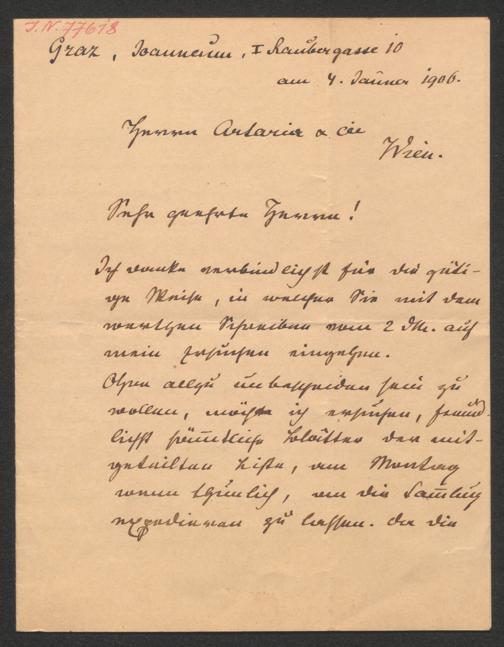 J.N. 77618
Graz, Joanneum, I Raubergasse 10
am 4. Jänner 1906.
Herren Artaria & Cie
Wien.
Sehr geehrte Herren!
Ich danke verbindlichst für die güti-
ge Weise, in welcher Sie mit dem
werthen Schreiben vom 2 dM. auf
mein Ersuchen eingehen.
Ohne allzu unbescheiden sein zu
wollen, möchte ich ersuchen, freund-
lichst sämtliche Blätter der mit-
geteilten Liste, am Montag
wenn thunlich, an die Samlung
expedieren zu lassen. Da die